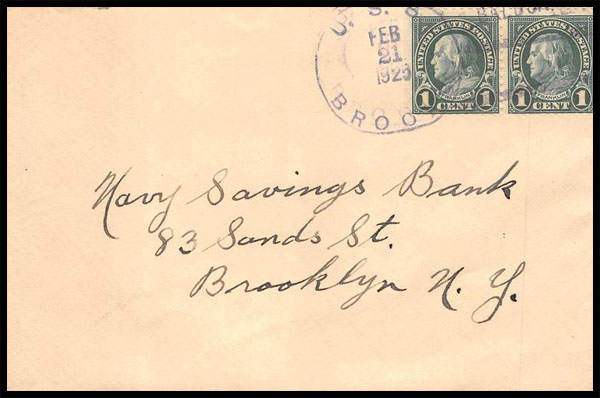 U.S.S.
FEB
21
1925
BROO
UNITED STATES POSTAGE
FRANKLIN
1 CENT 1
UNITED STATES POSTAGE
FRANKLIN
1 CENT 1
Navy Savings Bank
83 Sands St.
Brooklyn N. Y.